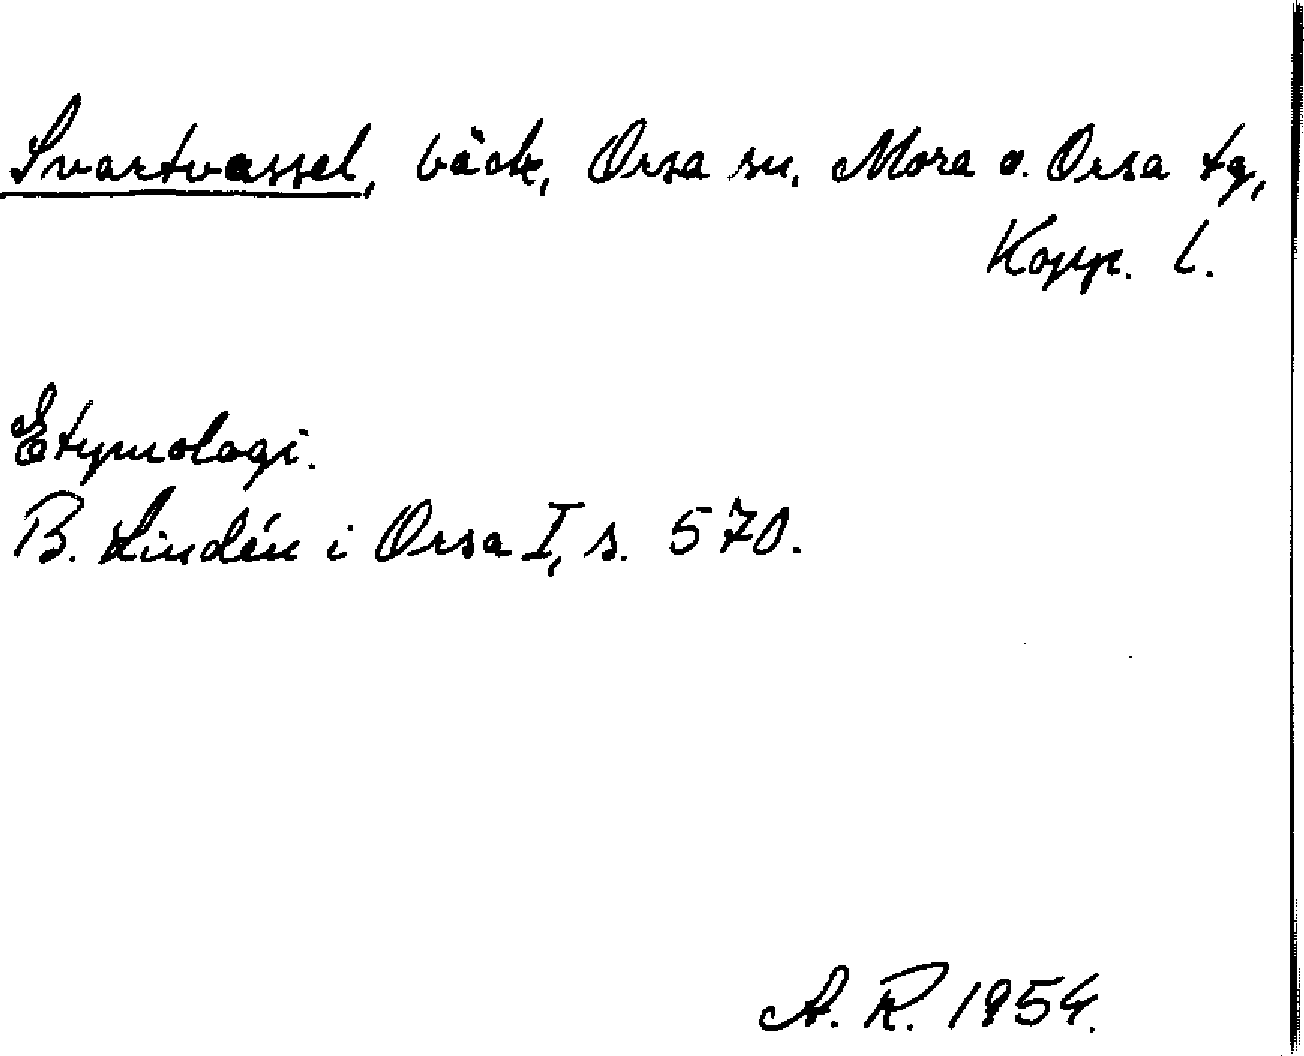 Svartvassel, bäck, Orsa sn. Mora o. Orsa tg,
Kopp. l.
Etymologi.
B. Lindén i Orsa I, s. 570.
A. R. 1954.